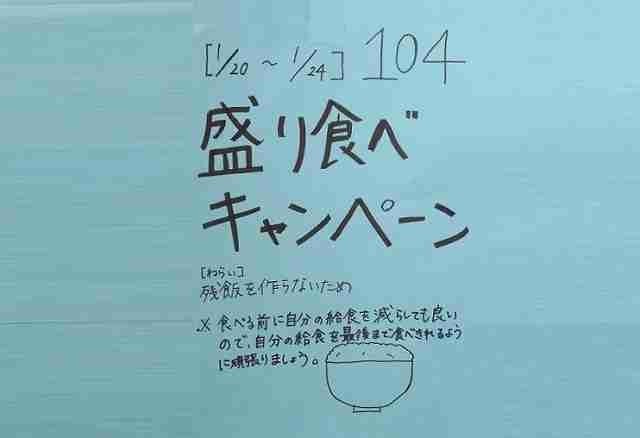 [1/20 ～ 1/24] 104
盛り食べ
キャンペーン
[ねらい]
残飯を作らないため
※ 食べる前に自分の給食を減らしても良い
ので、自分の給食を最後まで食べきれるよう
に頑張りましょう。